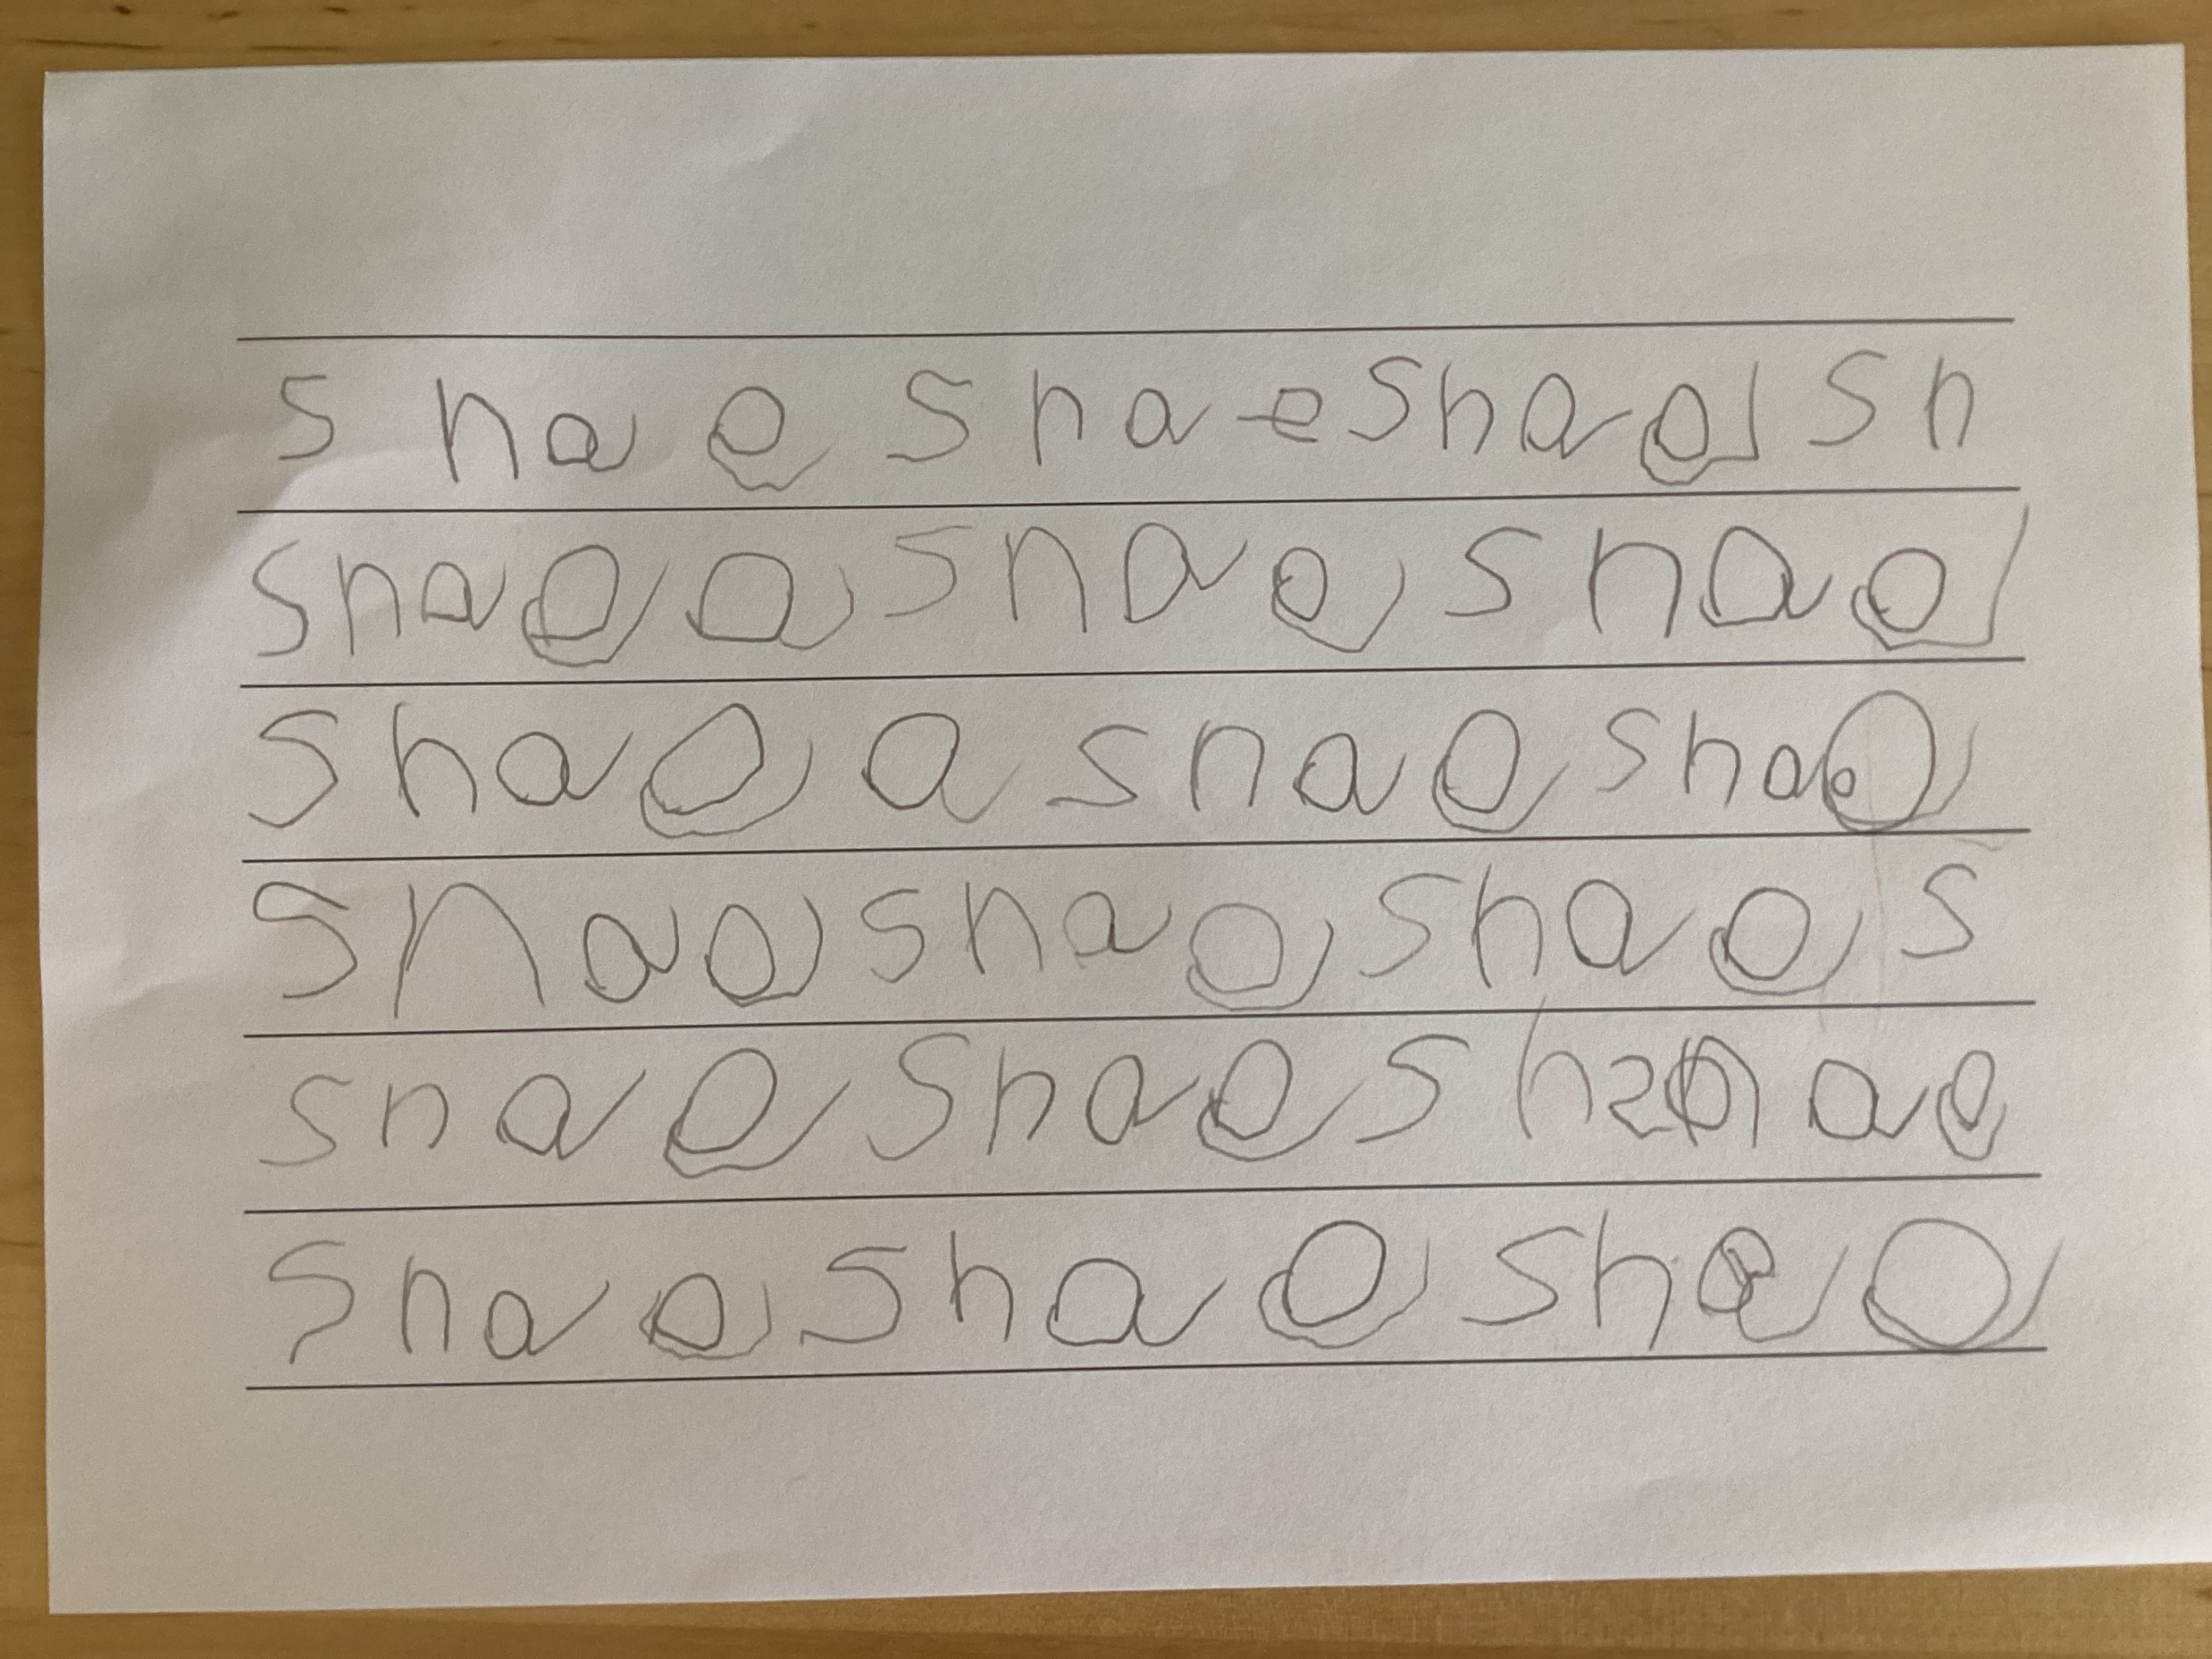 s h a e s h a e s h a e s h
s h a e a s h a e s h a e
s h a e a s h a e s h a e
s h a e s h a e s h a e s
s h a e s h a e s h a e
s h a e s h a e s h a e